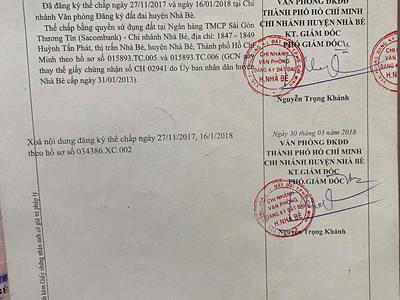 Đã đăng ký thế chấp ngày 27/11/2017 và ngày 16/01/2018 tại Chi
nhánh Văn phòng Đăng ký đất đai huyện Nhà Bè.
Thế chấp quyền sử dụng đất tại Ngân hàng TMCP Sài Gòn
Thương Tín (Sacombank) - Chi nhánh Nhà Bè, địa chỉ: 1847 - 1849
Huỳnh Tấn Phát, thị trấn Nhà Bè, huyện Nhà Bè, Thành phố Hồ Chí
Minh theo hồ sơ số 015893.TC.005 và 015893.TC.006 (GCN này
thay thế giấy chứng nhận số CH 02941 do Ủy ban nhân dân huyện
Nhà Bè cấp ngày 31/01/2013).
VĂN PHÒNG ĐKĐĐ
THÀNH PHỐ HỒ CHÍ MINH
CHI NHÁNH HUYỆN NHÀ BÈ
KT. GIÁM ĐỐC
PHÓ GIÁM ĐỐC
CHI NHÁNH
VĂN PHÒNG
ĐĂNG KÝ ĐẤT ĐAI
H.NHÀ BÈ
Nguyễn Trọng Khánh
Xoá nội dung đăng ký thế chấp ngày 27/11/2017, 16/1/2018
theo hồ sơ số 034386.XC.002
Ngày 30 tháng 03 năm 2018
VĂN PHÒNG ĐKĐĐ
THÀNH PHỐ HỒ CHÍ MINH
CHI NHÁNH HUYỆN NHÀ BÈ
KT.GIÁM ĐỐC
PHÓ.GIÁM ĐỐC
CHI NHÁNH
VĂN PHÒNG
ĐĂNG KÝ ĐẤT ĐAI
H.NHÀ BÈ
Nguyễn Trọng Khánh
kèm Giấy chứng nhận mới có giá trị pháp lý